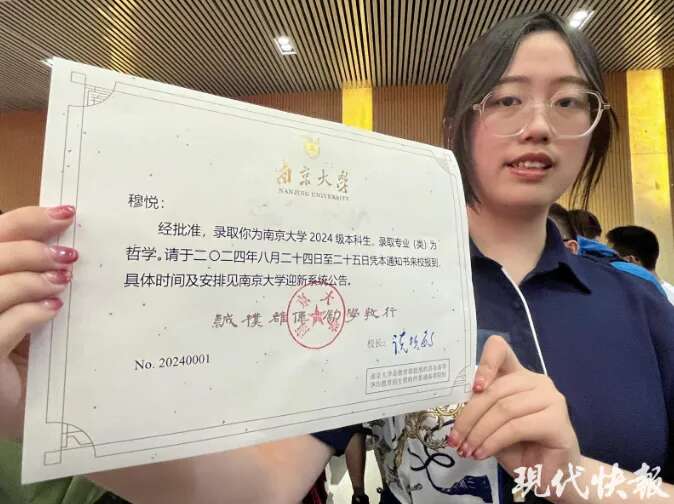 现代快报
南京大学
NANJING UNIVERSITY
穆悦：
经批准，录取你为南京大学2024级本科生，录取专业（类）为
哲学。请于二〇二四年八月二十四日至二十五日凭本通知书来校报到，
具体时间及安排见南京大学迎新系统公告。
誠樸雄偉 勵學敦行
校长：
No. 20240001
現代快報